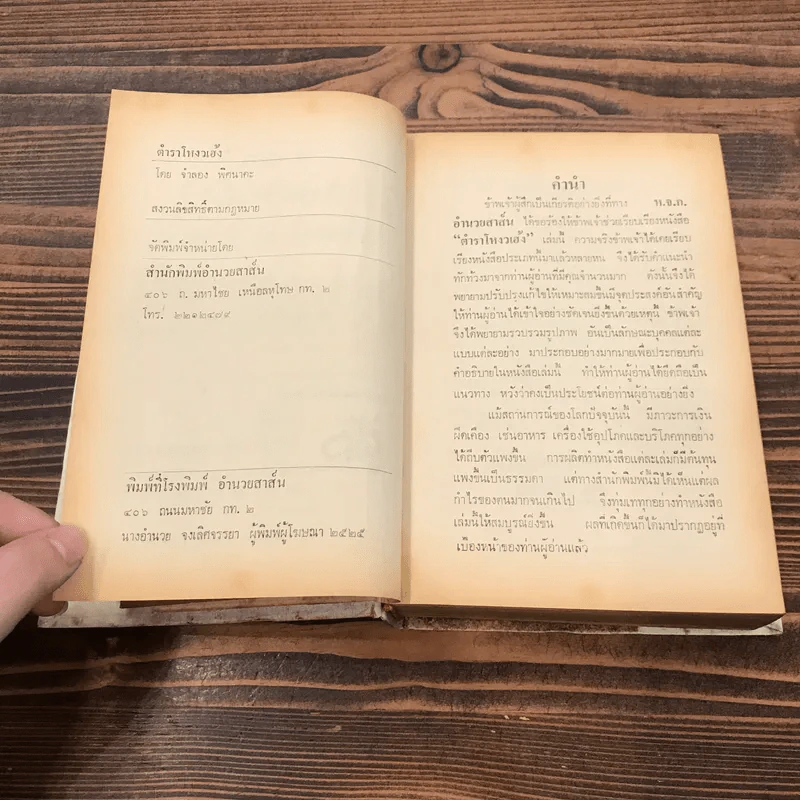 ตำราโหงวเฮ้ง
โดย จำลอง พิศนาคะ
สงวนลิขสิทธิ์ตามกฎหมาย
จัดพิมพ์จำหน่ายโดย
สำนักพิมพ์อำนวยสาส์น
๔๐๖ ถ. มหาไชย เหนือลหุโทษ กท. ๒
โทร. ๒๒๑๒๔๗๙
พิมพ์ที่โรงพิมพ์ อำนวยสาส์น
๔๐๖ ถนนมหาชัย กท. ๒
นางอำนวย จงเลิศจรรยา ผู้พิมพ์ผู้โฆษณา ๒๕๒๕
คำนำ
ข้าพเจ้ารู้สึกเป็นเกียรติอย่างยิ่งที่ทาง ห.จ.ก.
อำนวยสาส์น ได้ขอร้องให้ข้าพเจ้าช่วยเรียบเรียงหนังสือ
“ตำราโหงวเฮ้ง” เล่มนี้ ความจริงข้าพเจ้าได้เคยเรียบ
เรียงหนังสือประเภทนี้มาแล้วหลายหน จึงได้รับคำแนะนำ
ทักท้วงมาจากท่านผู้อ่านที่มีคุณจำนวนมาก ดังนั้นจึงได้
พยายามปรับปรุงแก้ไขให้เหมาะสมขึ้นมีจุดประสงค์อันสำคัญ
ให้ท่านผู้อ่านได้เข้าใจอย่างชัดเจนยิ่งขึ้นด้วยเหตุนี้ ข้าพเจ้า
จึงได้พยายามรวบรวมรูปภาพ อันเป็นลักษณะบุคคลแต่ละ
แบบแต่ละอย่าง มาประกอบอย่างมากมายเพื่อประกอบกับ
คำอธิบายในหนังสือเล่มนี้ ทำให้ท่านผู้อ่านได้ยึดถือเป็น
แนวทาง หวังว่าคงเป็นประโยชน์ต่อท่านผู้อ่านอย่างยิ่ง
แม้สถานการณ์ของโลกปัจจุบันนี้ มีภาวะการเงิน
ฝืดเคือง เช่นอาหาร เครื่องใช้อุปโภคและบริโภคทุกอย่าง
ได้ถีบตัวแพงขึ้น การผลิตทำหนังสือแต่ละเล่มก็มีต้นทุน
แพงขึ้นเป็นธรรมดา แต่ทางสำนักพิมพ์นี้มิได้เห็นแต่ผล
กำไรของตนมากจนเกินไป จึงทุ่มเททุกอย่างทำหนังสือ
เล่มนี้ให้สมบูรณ์ยิ่งขึ้น ผลที่เกิดขึ้นก็ได้มาปรากฏอยู่ที่
เบื้องหน้าของท่านผู้อ่านแล้ว